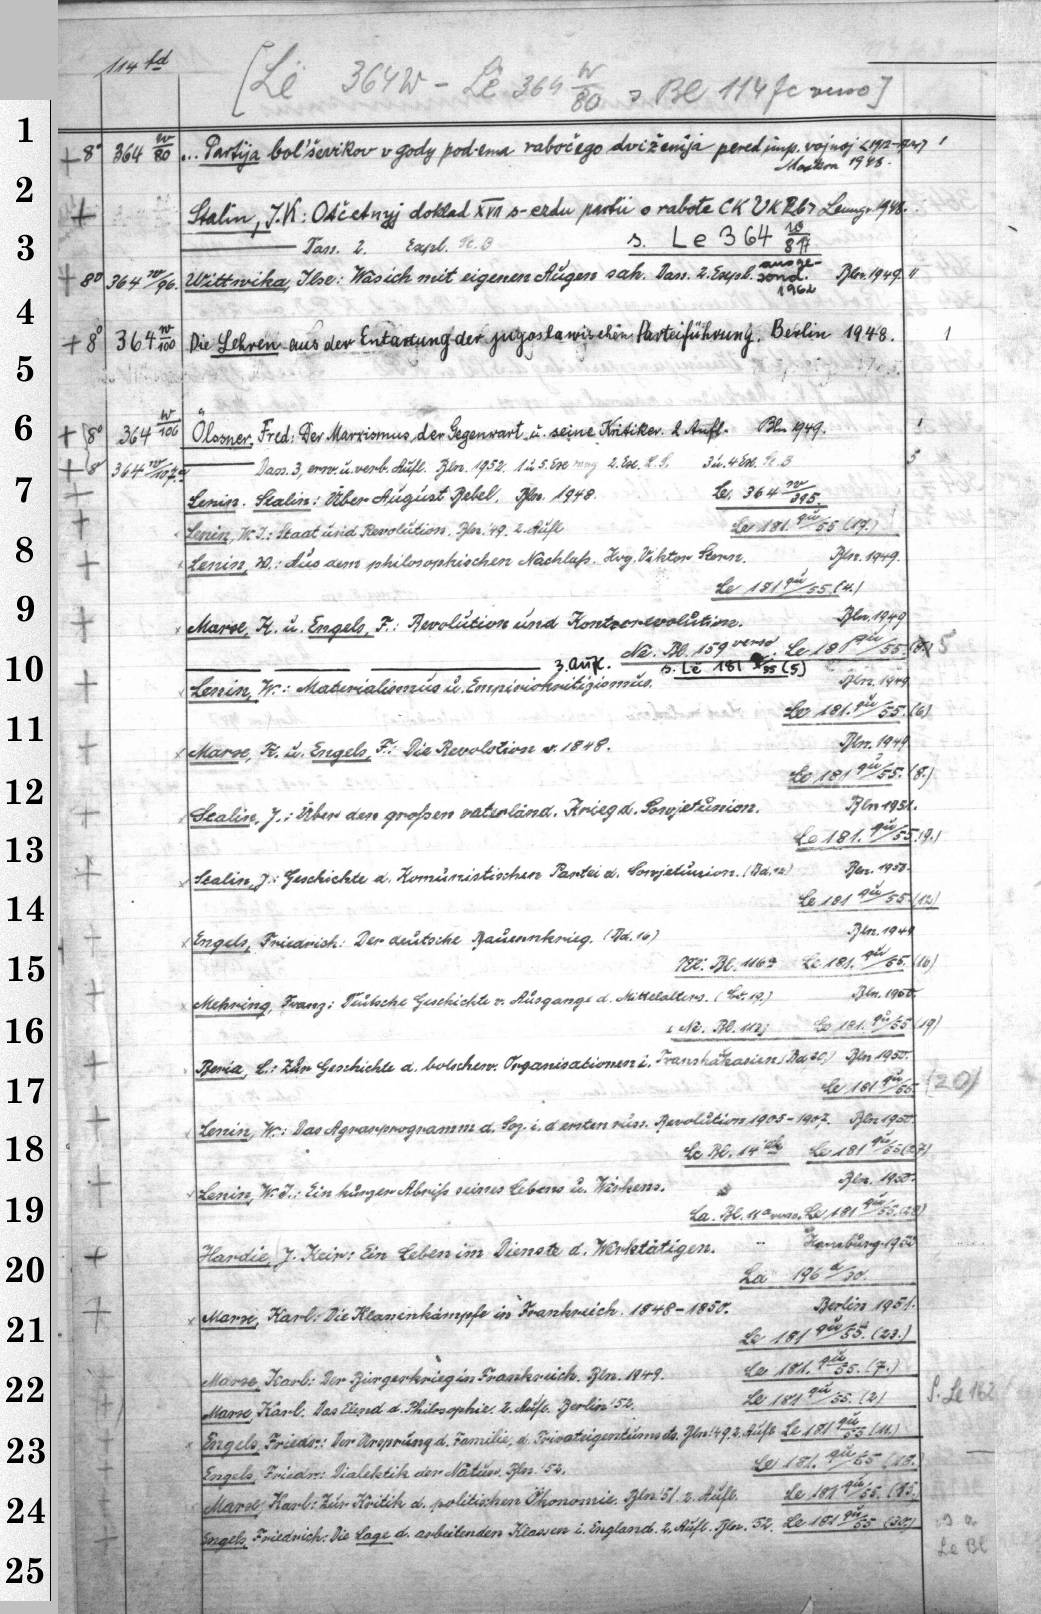 114 fd
[Lë 364 W – Le 364 w/80 s Bl 114 fc verso]
1
+ 8° 364 w/80 ... Partija bol'ševikov v gody pod-ema rabočego dviženija pered imp. vojnoj
Moskva 1948.
2
+ Stalin, J.V.: Otčetnyj doklad XVII s-ezdu partii o rabote CK VKP(b) Leningr. 1948.
3
Dass. 2. Expl. s. Le 364 w/87
+ 8° 364 w/96. Wittwika, Ilse: Was ich mit eigenen Augen sah. Dass. 2. Expl. ausge-sond. 1962 Bln. 1949. "
4
+ 8° 364 w/100 Die Lehren aus der Entartung der jugoslawischen Parteiführung. Berlin 1948. 1
5
6
+ 8° 364 w/106 Ölssner, Fred: Der Marxismus der Gegenwart u. seine Kritiker. 2 Aufl. Bln 1949. 1
+ 8° 364 w/107 Dass. 3, erw. u. verb. Aufl. Bln. 1952. 1 u. 5. Ex 2. Ex. L.S. 3 u. 4 Ex. 5
7
+ Lenin. Stalin: Über August Bebel. Bln. 1948. Le. 364 w/395.
+ Lenin, W.I.: Staat und Revolution. Bln. 49. 2. Aufl Le 181. qu/55 (17.)
8
+ Lenin, W.: Aus dem philosophischen Nachlaß. Hrg. Viktor Stern. Bln. 1949.
Le 181 qu/55 (4.)
9
+ Marx, K. u. Engels, F.: Revolution und Kontrerevolution. Bln. 1949
Ne. Bl. 159 verso. Le 181 qu/55. 5
10
3. Aufl. s. Le 181 qu/55 (5)
+ Lenin, W.: Materialismus u. Empiriokritizismus. Bln. 1949
11
Le 181. qu/55. (6)
+ Marx, K. u. Engels, F.: Die Revolution v. 1848. Bln. 1949
12
Le 181 qu/55. (8.)
+ Stalin, J.: Über den großen vaterländ. Krieg d. Sowjetunion. Bln 1951.
13
Le 181. qu/55. (9.)
+ Stalin, J.: Geschichte d. Kommunistischen Partei d. Sowjetunion. (Bd. 12) Bln. 1950.
14
Le 181 qu/55. (12)
+ Engels, Friedrich: Der deutsche Bauernkrieg. (Bd. 16) Bln. 1949
15
Ne. Bl. Le 181. qu/55. (16)
+ Mehring, Franz: Deutsche Geschichte v. Ausgange d. Mittelalters. Bln. 1950.
16
Ne. Bl. 112j Le 181. qu/55 (19)
+ Beria, L.: Zur Geschichte d. bolschew. Organisationen i. Transkaukasien (Bd. 20) Bln 1950.
17
Le 181 qu/55. (20)
+ Lenin, W.: Das Agrarprogramm d. Soz. i. d ersten russ. Revolution 1905-1907. Bln 1950.
18
Le Bl. Le 181 qu/55 (27)
+ Lenin, W.I.: Ein kurzer Abriß seines Lebens u. Wirkens. Bln. 1950.
19
La. Bl. 11a verso. Le 181 qu/55. (28)
+ Hardie, J. Keir: Ein Leben im Dienste d. Werktätigen. " Hamburg 1950
20
La 196 a/30.
+ Marx, Karl: Die Klassenkämpfe in Frankreich. 1848-1850. Berlin 1951.
21
Le 181 qu/55. (23.)
Marx, Karl: Der Bürgerkrieg in Frankreich. Bln. 1949. Le 181. qu/55. (7.)
22
Marx, Karl. Das Elend d. Philosophie. 2. Aufl. Berlin '52. Le 181 qu/55. (2) s. Le 162
Engels, Friedr: Der Ursprung d. Familie, d. Privateigentums ds. Bln. '49. 2. Aufl. Le 181 qu/55 (11.)
23
Engels, Friedr: Dialektik der Natur. Bln. '52. Le 181. qu/55 (18.)
24
Marx, Karl: Zur Kritik d. politischen Ökonomie. Bln '51 2. Aufl. Le 181 qu/55.
Engels, Friedrich: Die Lage d. arbeitenden Klassen i. England. 2. Aufl. Bln. 52. Le 181 qu/55 (30.)
25
Le Bl